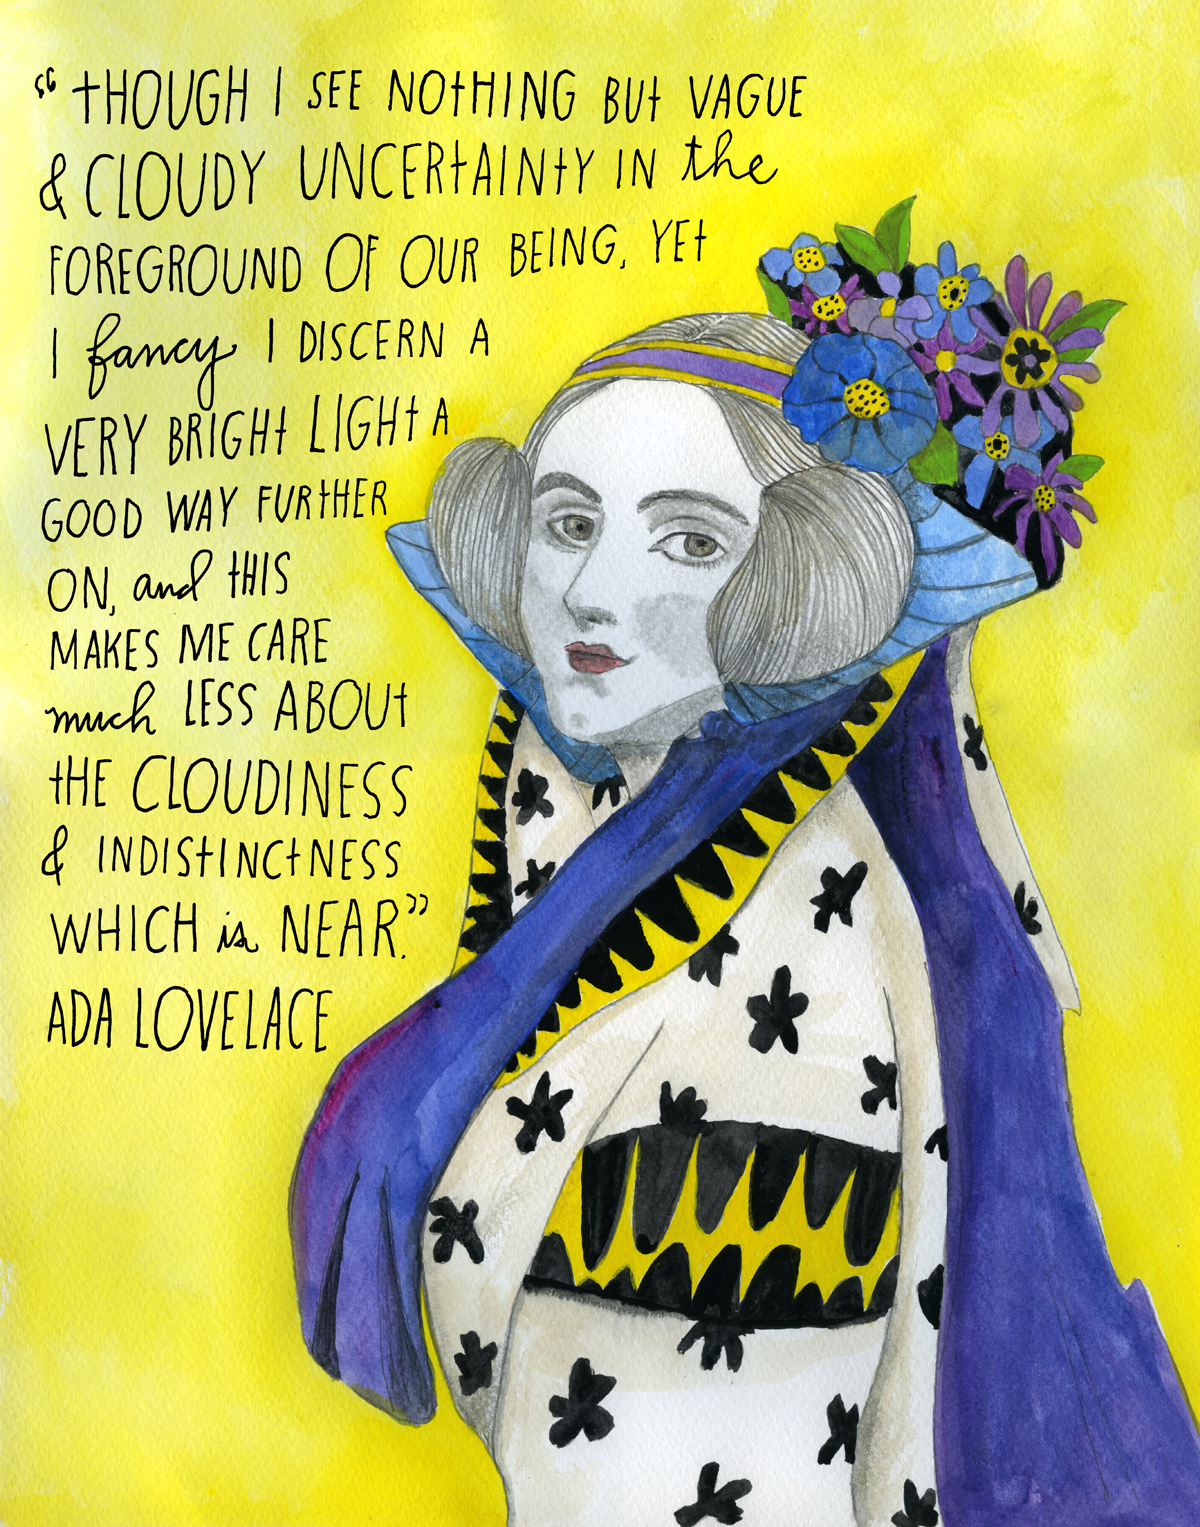 “THOUGH I SEE NOTHING BUT VAGUE
& CLOUDY UNCERTAINTY IN the
FOREGROUND OF OUR BEING, YET
I fancy I DISCERN A
VERY BRIGHT LIGHT A
GOOD WAY FURTHER
ON, and THIS
MAKES ME CARE
much LESS ABOUT
THE CLOUDINESS
& INDISTINCTNESS
WHICH is NEAR.”
ADA LOVELACE